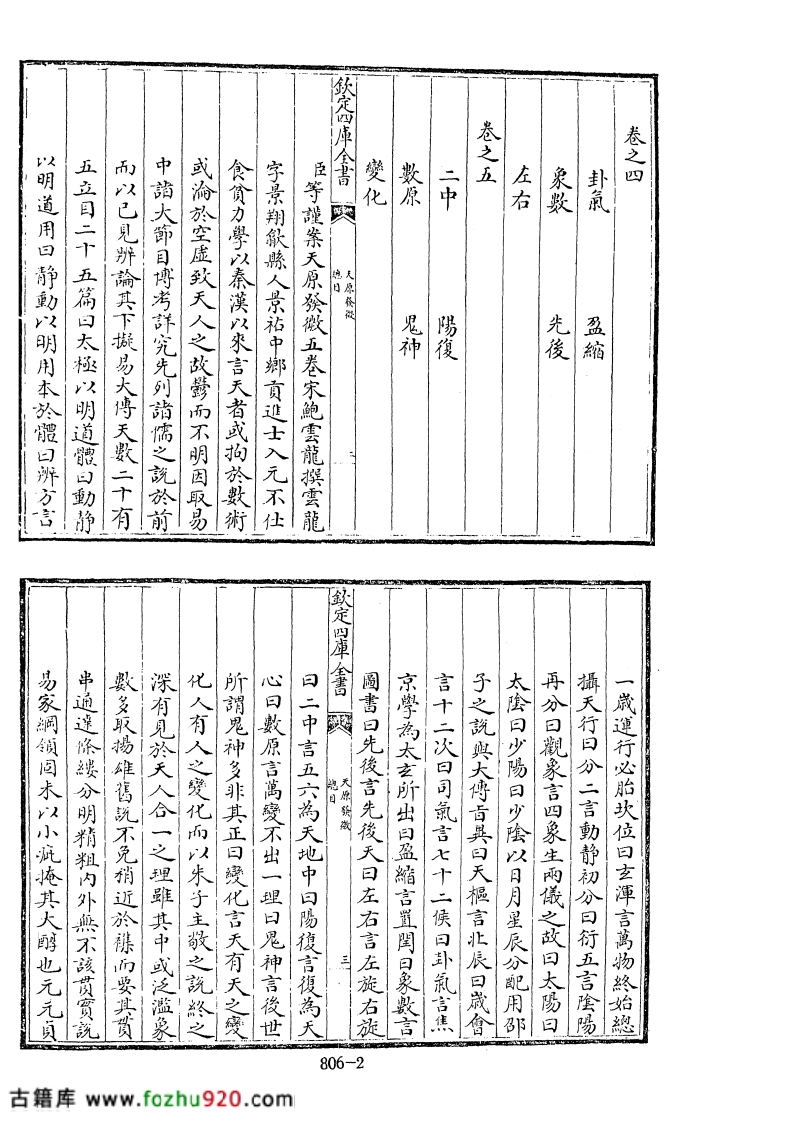 卷之四
卦氣 盈縮
象數 先後
左右
卷之五
二中 陽復
數原 鬼神
變化
欽定四庫全書
天原發微
總目
二
臣等謹案天原發微五卷宋鮑雲龍撰雲龍
字景翔歙縣人景祐中鄉貢進士入元不仕
食貧力學以秦漢以來言天者或拘於數術
或淪於空虛致天人之故鬱而不明因取易
中諸大節目博考詳究先列諸儒之說於前
而以己見辨論其下擬易大傳天數二十有
五立目二十五篇曰太極以明道體曰動靜
以明道用曰靜動以明用本於體曰辨方言
一歲運行必胎坎位曰玄渾言萬物終始總
攝天行曰分二言動靜初分曰衍五言陰陽
再分曰觀象言四象生兩儀之故曰太陽曰
太陰曰少陽曰少陰以日月星辰分配用邵
子之說與大傳旨異曰天樞言北辰曰歲會
言十二次曰司氣言七十二候曰卦氣言焦
京學為太玄所出曰盈縮言置閏曰象數言
圖書曰先後言先後天曰左右言左旋右旋
欽定四庫全書
天原發微
總目
三
曰二中言五六為天地中曰陽復言復為天
心曰數原言萬變不出一理曰鬼神言後世
所謂鬼神多非其正曰變化言天有天之變
化人有人之變化而以朱子主敬之說終之
深有見於天人合一之理雖其中或泛濫象
數多取揚雄舊說不免稍近於襍而要其貫
串通達條縷分明精粗內外無不該貫實說
易家綱領固未以小疵掩其大醇也元元貞
806-2
古籍库 www.fozhu920.com